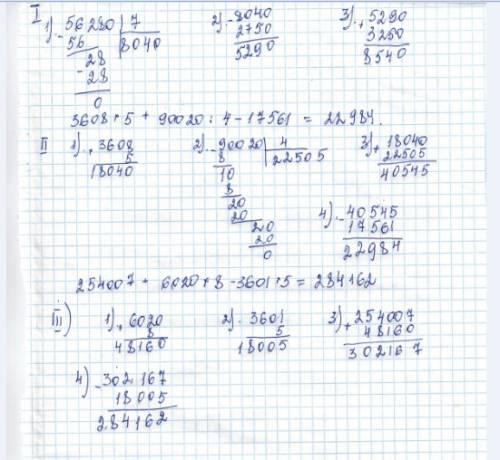 I 1) - 56280 | 7 2) - 8040 3) + 5290
56 8040 2750 3250
28 5290 8540
- 28
0
3608 * 5 + 90020 : 4 - 17561 = 22984.
II 1) * 3608 2) - 90020 | 4 3) + 18040
5 8 22505 22505
18040 10 40545
8
20
20
20
20
0
4) - 40545
17561
22984
254007 + 6020 * 8 - 3601 * 5 = 284162
III) 1) * 6020 2) * 3601 3) + 254007
8 5 48160
48160 18005 302167
4) - 302167
18005
284162